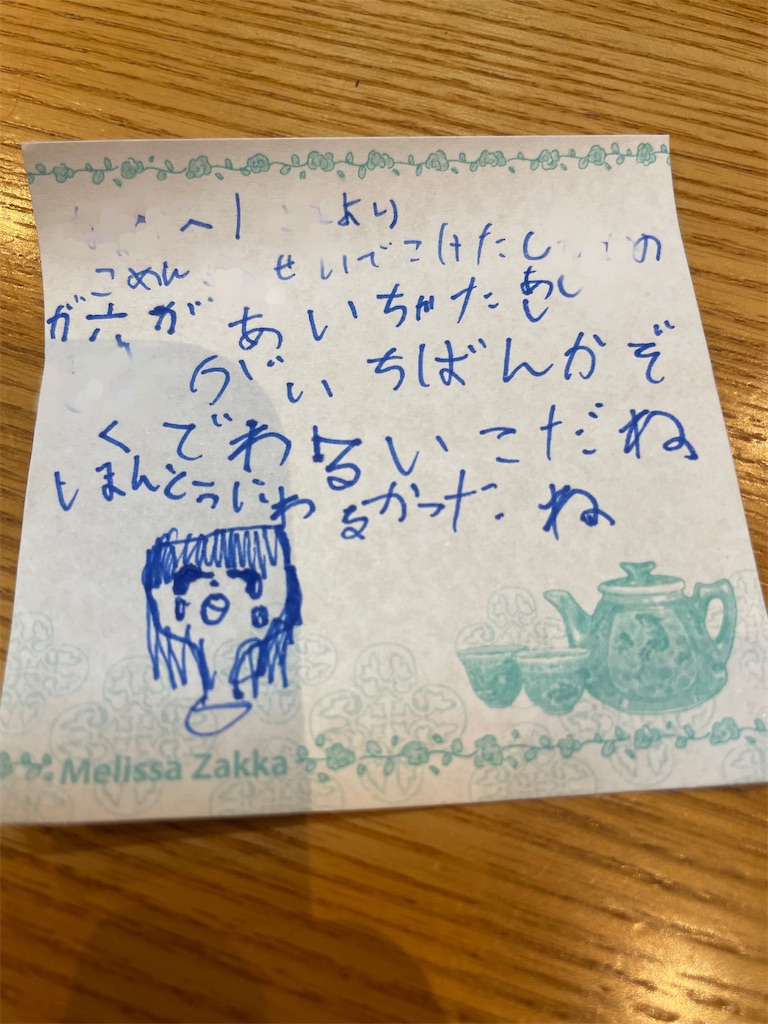 へ より
ごめん せいでこけたし の
が六が あいちゃた あし
がいちばんかぞ
くでわるいこだね
しまんとうにわるかっだね
Melissa Zakka